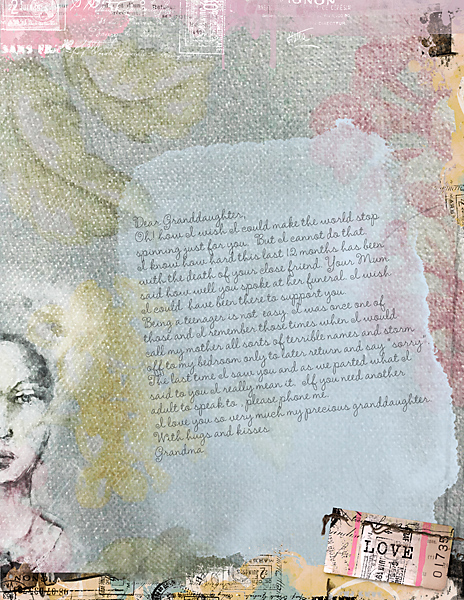 SANS FR
Dear Granddaughter,
Oh! how I wish I could make the world stop
spinning just for you. But I cannot do that.
I know how hard this last 12 months has been
with the death of your close friend. Your Mum
said how well you spoke at her funeral. I wish
I could have been there to support you.
Being a teenager is not easy. I was once one of
those and I remember those times when I would
call my mother all sorts of terrible names and storm
off to my bedroom only to later return and say "sorry".
The last time I saw you and as we parted what I
said to you I really mean it. If you need another
adult to speak to. Please phone me.
I love you so very much my precious granddaughter.
With hugs and kisses.
Grandma
LOVE
01735